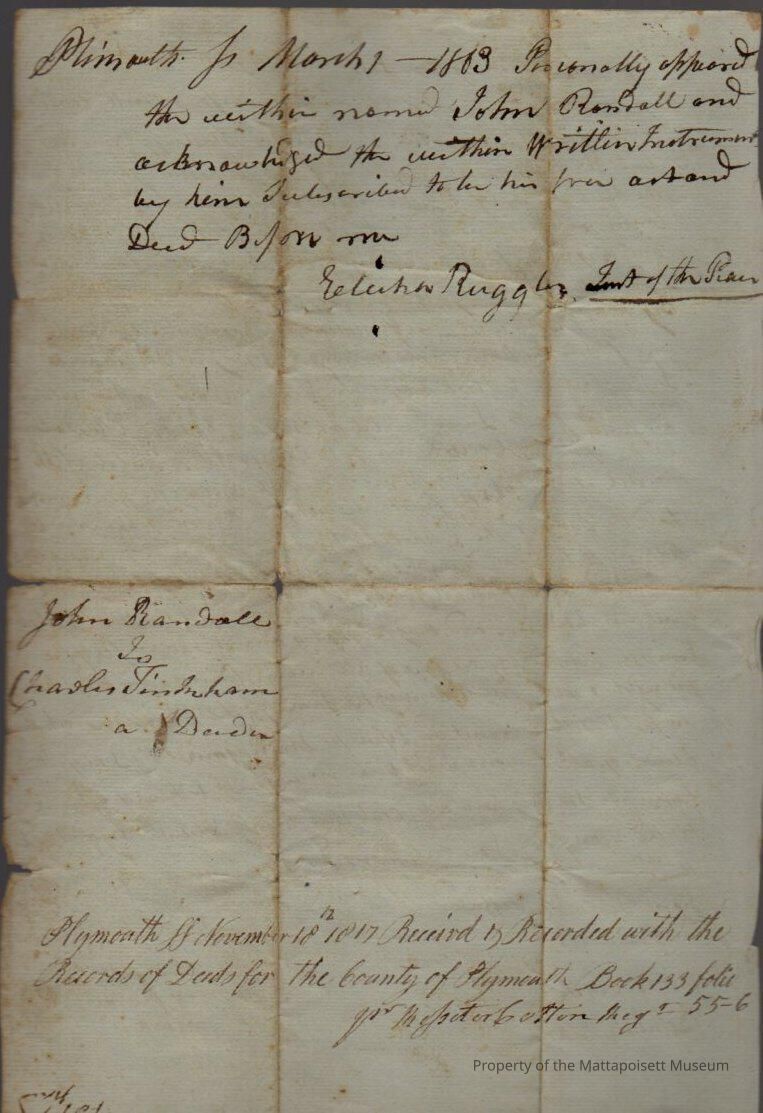 Plimouth. Ss March 1 — 1803 Personally appeared
the within named John Randall and
acknowledged the within Writtin Instrument
by him Subscribed to be his free act and
Deed Before me
Elisha Ruggles, Just of the Peace
John Randall
To
Charles Tinkham
a Deed
Plymouth Ss November 18th 1817 Receivd & Recorded with the
Records of Deeds for the County of Plymouth Book 133 folio
pr Rossiter Cotton Regr 55-6
Property of the Mattapoisett Museum